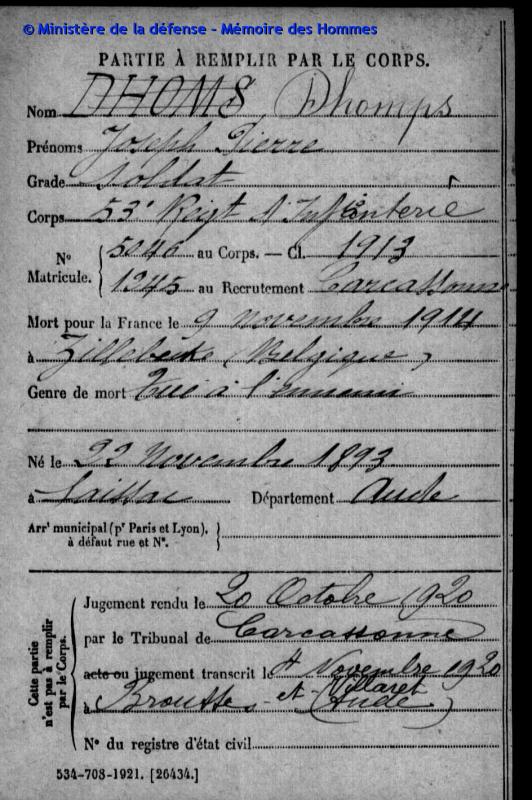 © Ministère de la défense - Mémoire des Hommes
PARTIE À REMPLIR PAR LE CORPS.
Nom DHOMS, Dhomps
Prénoms Joseph Pierre
Grade Soldat
Corps 53e Régt d'Infanterie
N° Matricule. { 5046 au Corps. — Cl. 1913
1245 au Recrutement Carcassonne
Mort pour la France le 9 novembre 1914
à Zillebeke (Belgique)
Genre de mort Tué à l'ennemi
Né le 22 Novembre 1893
à Saissac Département Aude
Arrt municipal (pr Paris et Lyon), à défaut rue et N°. }
Cette partie n'est pas à remplir par le Corps.
Jugement rendu le 20 Octobre 1920
par le Tribunal de Carcassonne
acte ou jugement transcrit le 4 Novembre 1920
à Brousses et Villaret (Aude)
N° du registre d'état civil
534-708-1921. [26434.]